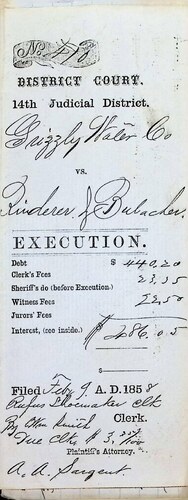 No. 413
DISTRICT COURT.
14th Judicial District.
Grizzly Water Co
vs.
Rinderer & Bubacher
EXECUTION.
Debt $ 440,20
Clerk's Fees 23,35
Sheriff's do (before Execution.)
Witness Fees 22,50
Jurors' Fees
Interest, (see inside.) $ 486.05
$
Filed Feby 9 A. D. 1858
Rufus Shoemaker Clk
Clerk.
By Smith
Due Clk, $ 3,
Plaintiff's Attorney.
A. A. Sargent.